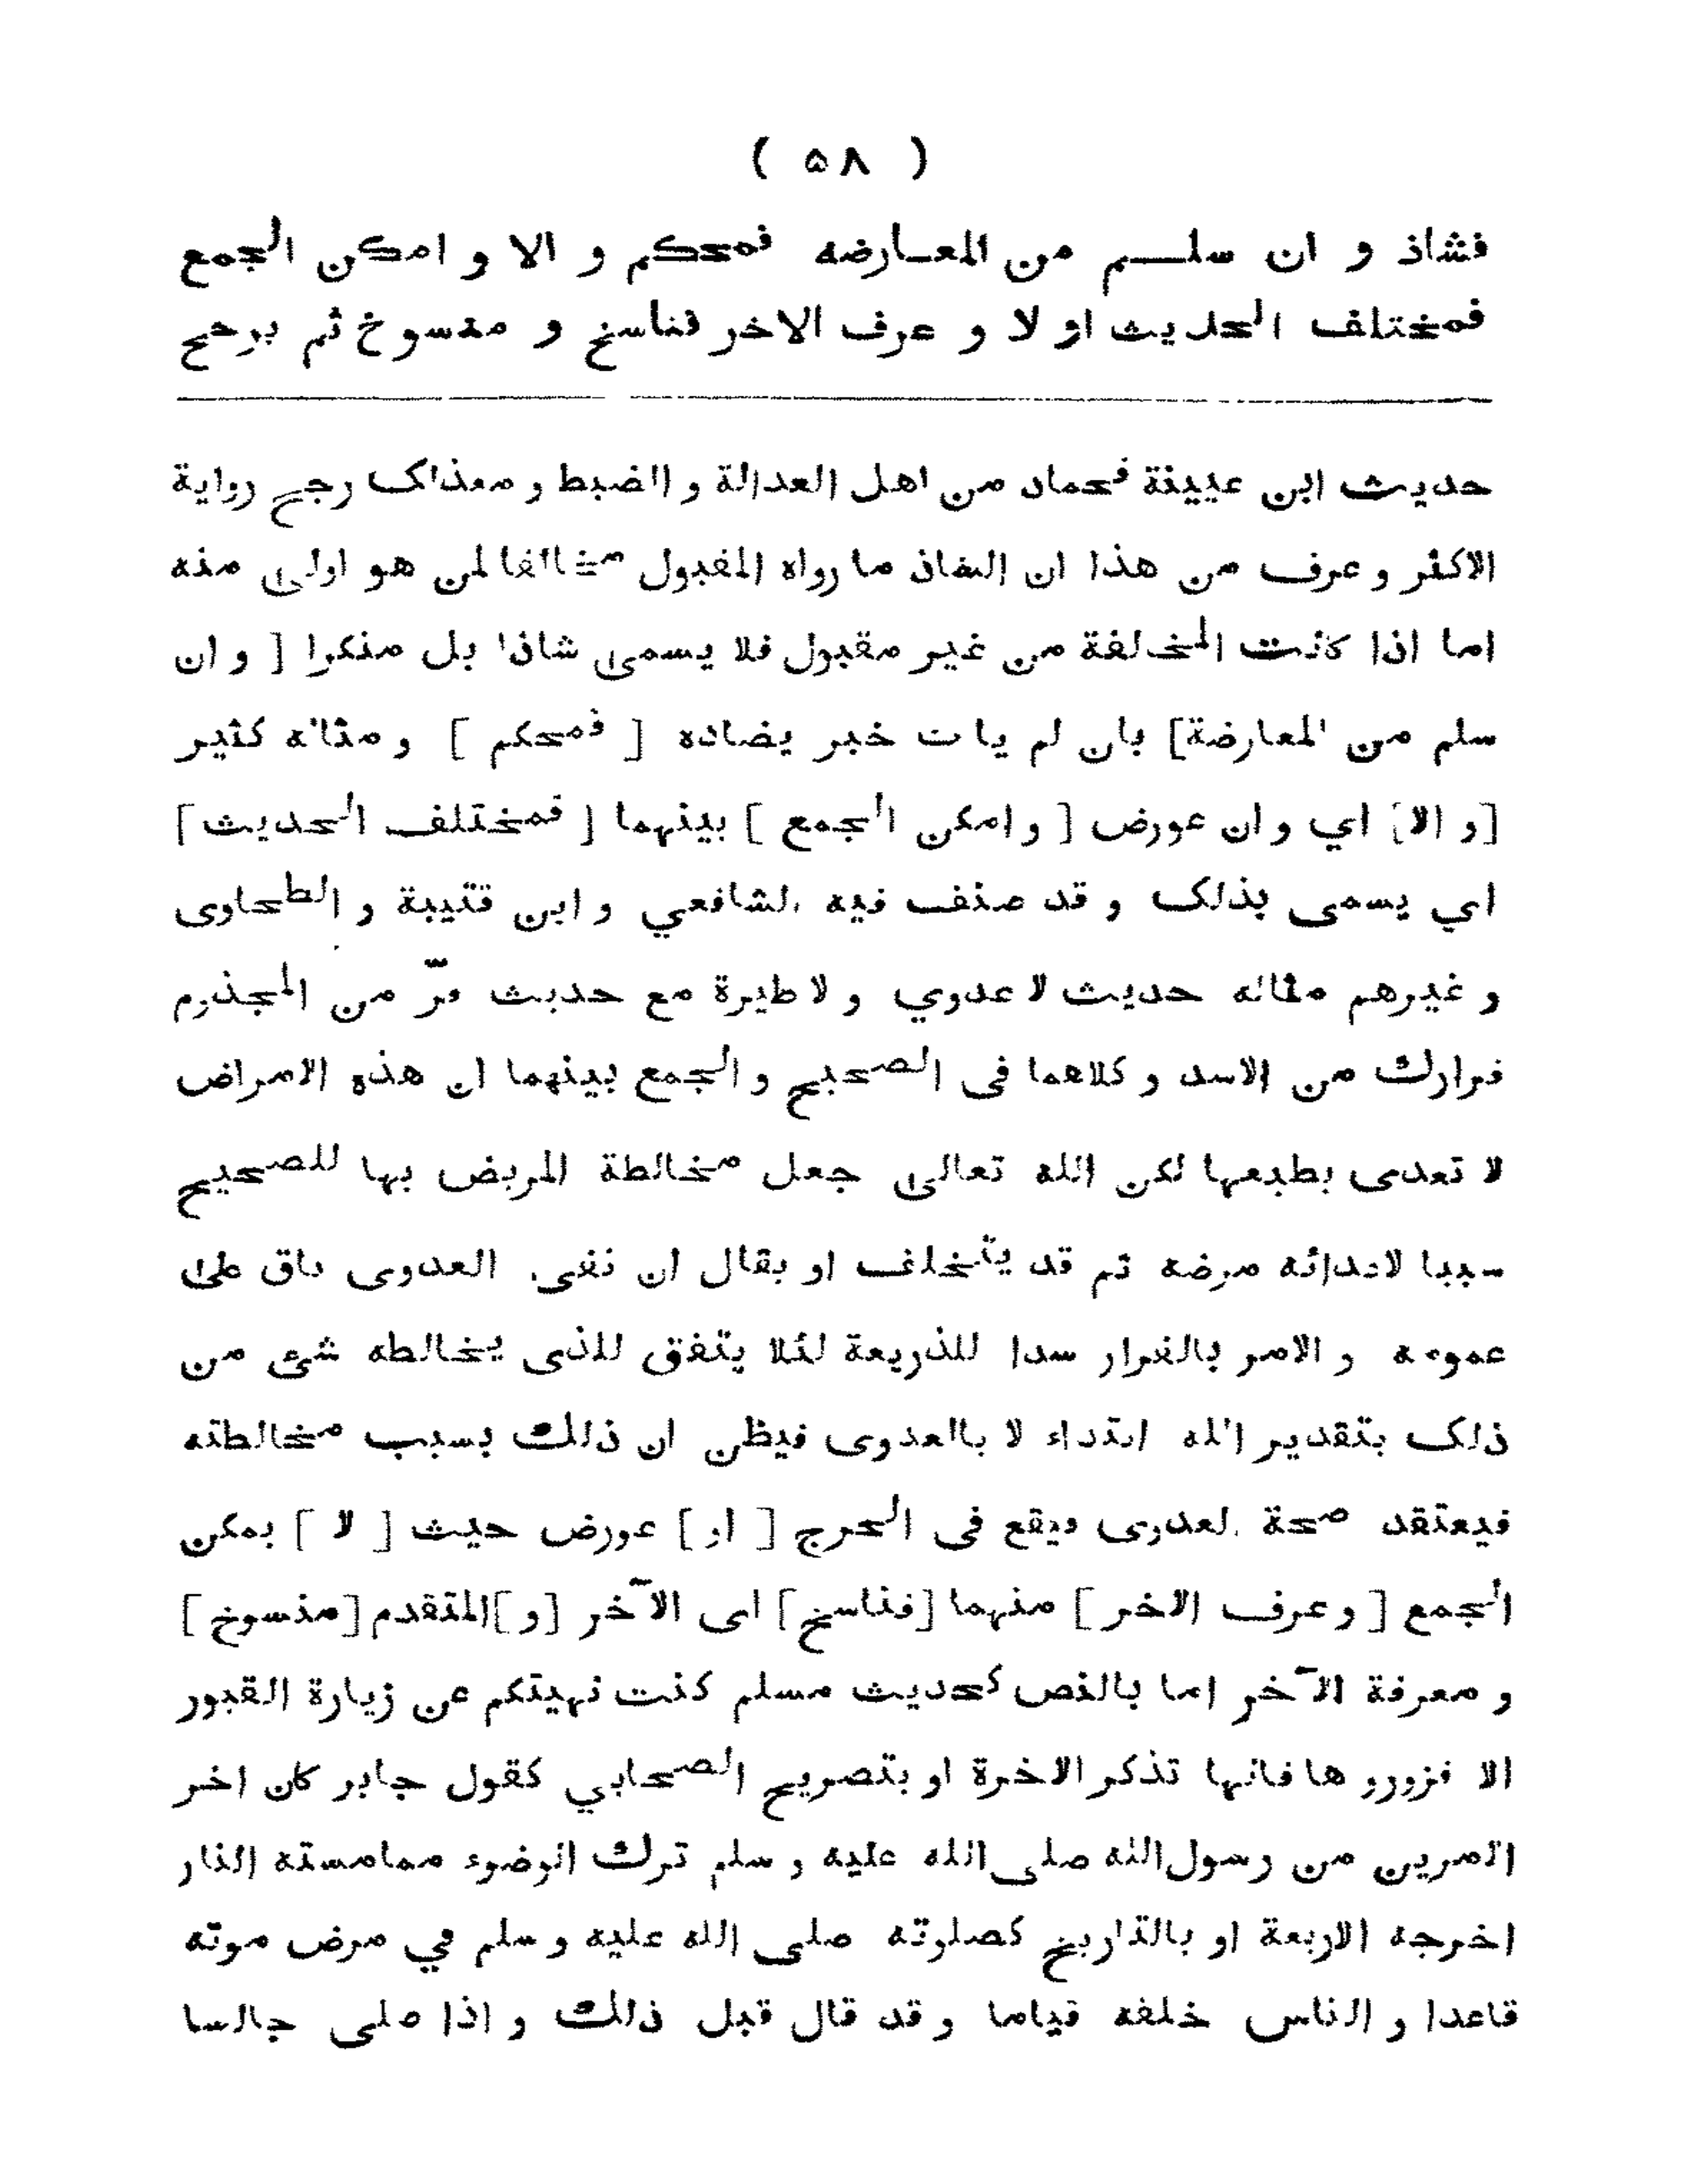 ( ۵۸ )
فشاذ و ان سلـــم من المعـارضه فمحكم و الا و امكن الجمع
فمختلف الحديث او لا و عرف الاخر فناسخ و منسوخ ثم يرجح
حديث ابن عيينة فحماد من اهل العدالة و الضبط و معذاک رجح رواية
الاكثر و عرف من هذا ان الشاذ ما رواه المقبول مخالفا لمن هو اولى منه
اما اذا كانت المخالفة من غير مقبول فلا يسمى شاذا بل منكرا [ و ان
سلم من المعارضة] بان لم يات خبر يضاده [ فمحكم ] و مثاله كثير
[و الا] اي و ان عورض [ و امكن الجمع ] بينهما [ فمختلف الحديث]
اي يسمى بذلک و قد صنف فيه الشافعي و ابن قتيبة و الطحاوى
و غيرهم مثاله حديث لا عدوي و لا طيرة مع حديث فرّ من المجذوم
فرارك من الاسد و كلاهما فى الصحيح و الجمع بينهما ان هذه الامراض
لا تعدى بطبعها لكن الله تعالى جعل مخالطة المريض بها للصحيح
سببا لاعدائه مرضه ثم قد يتخلف او يقال ان نفى العدوى باق على
عمومه و الامر بالفرار سدا للذريعة لئلا يتفق للذى يخالطه شئ من
ذلک بتقدير الله ابتداء لا بالعدوى فيظن ان ذلك بسبب مخالطته
فيعتقد صحة العدوى فيقع فى الحرج [ او ] عورض حيث [ لا ] يمكن
الجمع [ و عرف الاخر ] منهما [فناسخ] اى الآخر [و]المتقدم [منسوخ]
و معرفة الآخر اما بالنص كحديث مسلم كنت نهيتكم عن زيارة القبور
الا فزورو ها فانها تذكر الاخرة او بتصريح الصحابي كقول جابر كان اخر
الامرين من رسول الله صلى الله عليه و سلم ترك الوضوء ممامسته النار
اخرجه الاربعة او بالتاريخ كصلوته صلى الله عليه و سلم في مرض موته
قاعدا و الناس خلفه قياما و قد قال قبل ذلك و اذا صلى جالسا